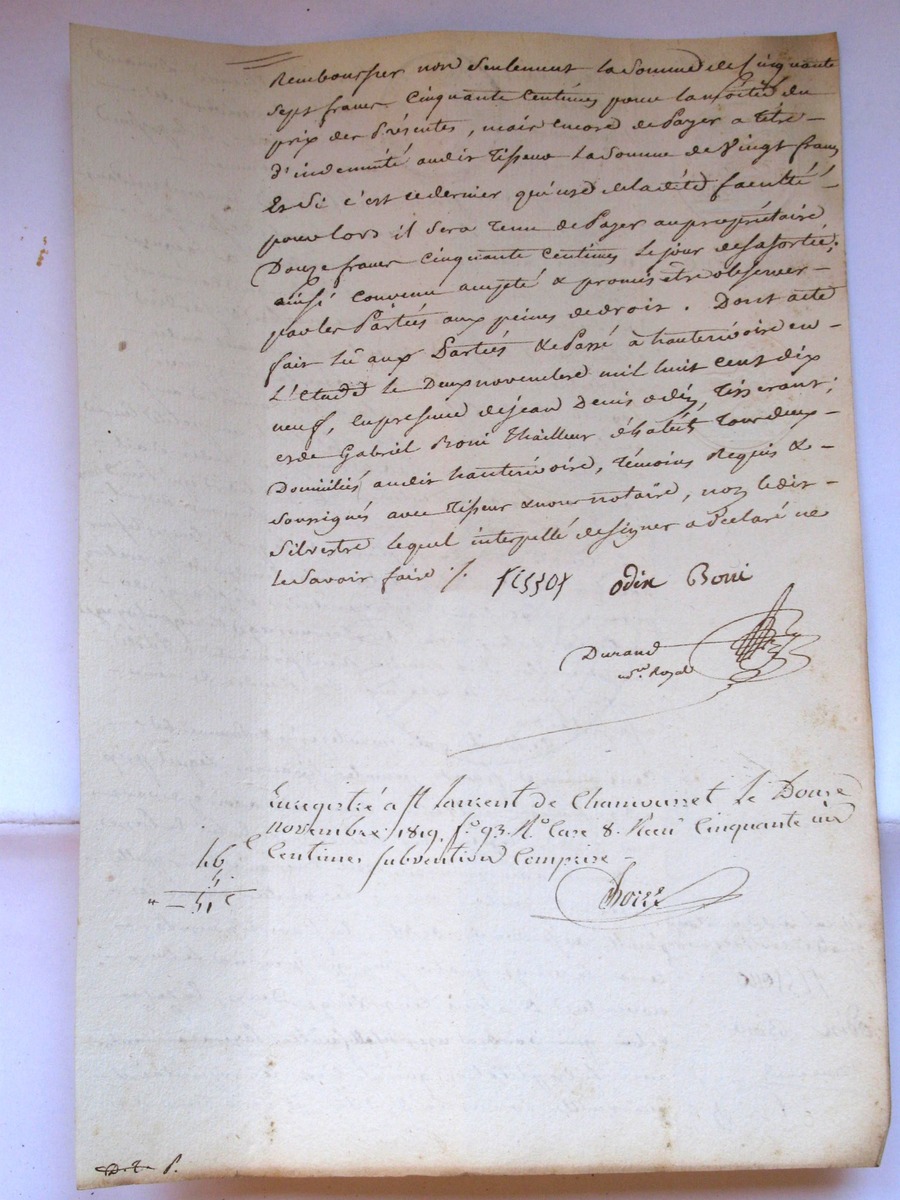 Rembourser non Seulement la Somme de Cinquante
Sept francs Cinquante Centimes pour la moitié du
prix des Présentes, mais encore de Payer a titre
d'indemnité audit Tisseur La Somme de Vingt francs
Et Si c'est ce dernier qui use de la dite faculté
pour lors il Sera tenu de Payer au propriétaire
Douze francs Cinquante Centimes le jour de sa sortie;
ainsi Convenu accepté & promis être observer
par les Parties aux peines de droit. Dont acte
fait lu aux Parties & Passé à hauterivoire en
L'étude le Deux novembre mil huit Cent dix
neuf, En presence de jean Denis odin, Tisserant;
et de Gabriel Boni Thailleur d'habits Tous deux
Domiciliés audit hauterivoire, témoins Requis &
Soussignés avec Tisseur & nous notaire, non ledit
Silvestre lequel interpellé de signer a Déclaré ne
le Savoir faire ./.
Tissox odin Boni
Durand
n.re Royal
Enregistré a St Laurent de Chamousset Le Douze
novembre 1819, f.o 93. R.o Case 8. Recu Cinquante un
Centimes Subvention Comprise
46 c
5.
" — 51 c